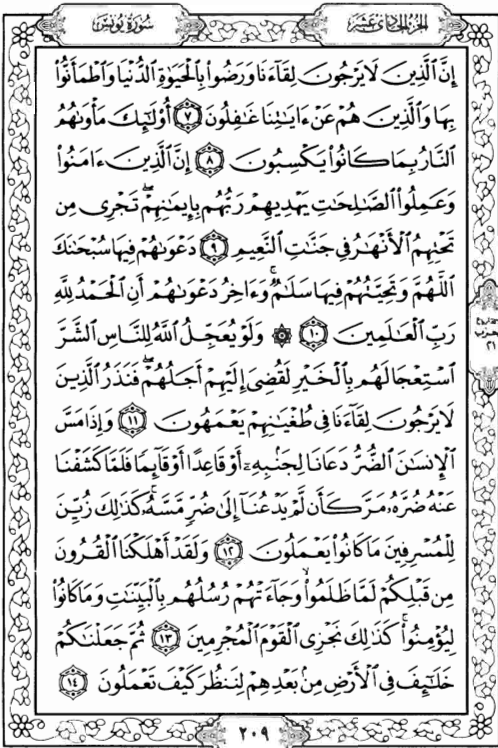 الجزء الحادي عشر
سورة يونس
إِنَّ ٱلَّذِينَ لَا يَرْجُونَ لِقَآءَنَا وَرَضُوا۟ بِٱلْحَيَوٰةِ ٱلدُّنْيَا وَٱطْمَأَنُّوا۟
بِهَا وَٱلَّذِينَ هُمْ عَنْ ءَايَٰتِنَا غَٰفِلُونَ ٧ أُو۟لَٰٓئِكَ مَأْوَىٰهُمُ
ٱلنَّارُ بِمَا كَانُوا۟ يَكْسِبُونَ ٨ إِنَّ ٱلَّذِينَ ءَامَنُوا۟
وَعَمِلُوا۟ ٱلصَّٰلِحَٰتِ يَهْدِيهِمْ رَبُّهُم بِإِيمَٰنِهِمْ ۖ تَجْرِى مِن
تَحْتِهِمُ ٱلْأَنْهَٰرُ فِى جَنَّٰتِ ٱلنَّعِيمِ ٩ دَعْوَىٰهُمْ فِيهَا سُبْحَٰنَكَ
ٱللَّهُمَّ وَتَحِيَّتُهُمْ فِيهَا سَلَٰمٌ ۚ وَءَاخِرُ دَعْوَىٰهُمْ أَنِ ٱلْحَمْدُ لِلَّهِ
رَبِّ ٱلْعَٰلَمِينَ ١٠ ۞ وَلَوْ يُعَجِّلُ ٱللَّهُ لِلنَّاسِ ٱلشَّرَّ
ٱسْتِعْجَالَهُم بِٱلْخَيْرِ لَقُضِىَ إِلَيْهِمْ أَجَلُهُمْ ۖ فَنَذَرُ ٱلَّذِينَ
لَا يَرْجُونَ لِقَآءَنَا فِى طُغْيَٰنِهِمْ يَعْمَهُونَ ١١ وَإِذَا مَسَّ
ٱلْإِنسَٰنَ ٱلضُّرُّ دَعَانَا لِجَنۢبِهِۦٓ أَوْ قَاعِدًا أَوْ قَآئِمًا فَلَمَّا كَشَفْنَا
عَنْهُ ضُرَّهُۥ مَرَّ كَأَن لَّمْ يَدْعُنَآ إِلَىٰ ضُرٍّ مَّسَّهُۥ ۚ كَذَٰلِكَ زُيِّنَ
لِلْمُسْرِفِينَ مَا كَانُوا۟ يَعْمَلُونَ ١٢ وَلَقَدْ أَهْلَكْنَا ٱلْقُرُونَ
مِن قَبْلِكُمْ لَمَّا ظَلَمُوا۟ ۙ وَجَآءَتْهُمْ رُسُلُهُم بِٱلْبَيِّنَٰتِ وَمَا كَانُوا۟
لِيُؤْمِنُوا۟ ۚ كَذَٰلِكَ نَجْزِى ٱلْقَوْمَ ٱلْمُجْرِمِينَ ١٣ ثُمَّ جَعَلْنَٰكُمْ
خَلَٰٓئِفَ فِى ٱلْأَرْضِ مِنۢ بَعْدِهِمْ لِنَنظُرَ كَيْفَ تَعْمَلُونَ ١٤
حزب
٢١
٢٠٩